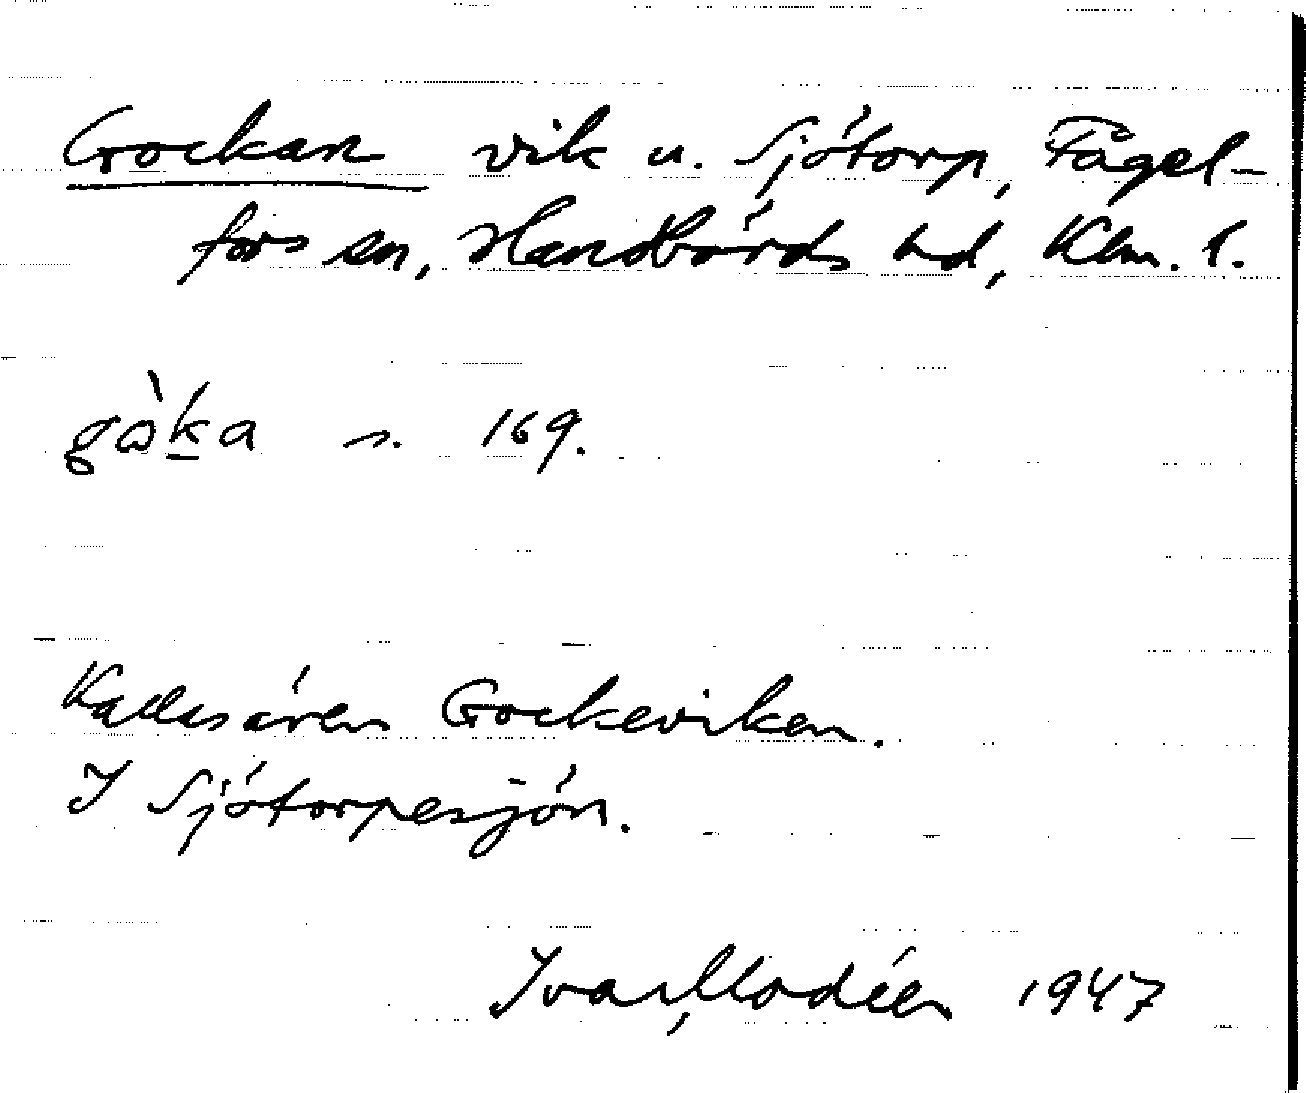 Gockan vik u. Sjötorp, Fågel-
fors sn, Handbörds hd, Klm. l.
gò̀ka s. 169.
Kallas även Gockeviken.
I Sjötorpesjön.
Ivar Modéer 1947